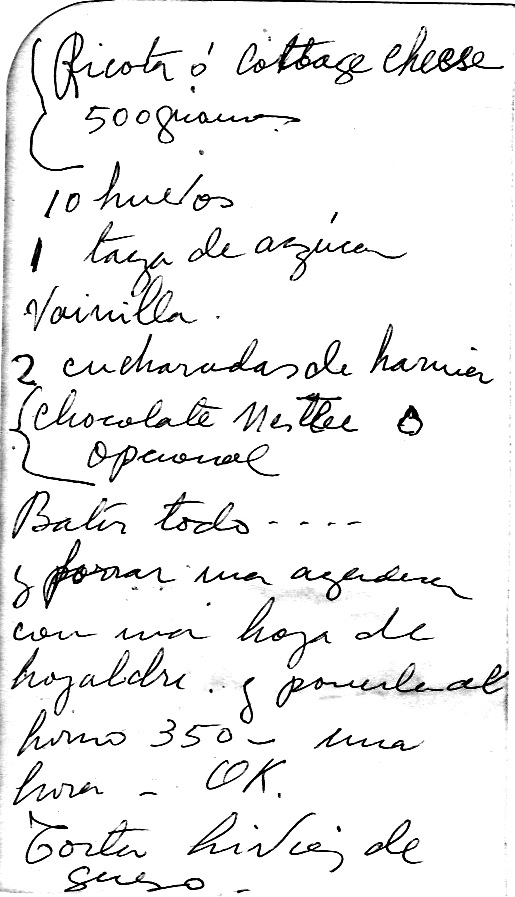 Ricota ó Cottage cheese
500 gramos
10 huevos
1 taza de azúcar
Vainilla.
2 cucharadas de harina
Chocolate Nestlee O
opcional
Batir todo ----
y forrar una
con una hoja de
hojaldre. y ponerla al
horno 350 - una
hora - OK.
Torta de
queso -